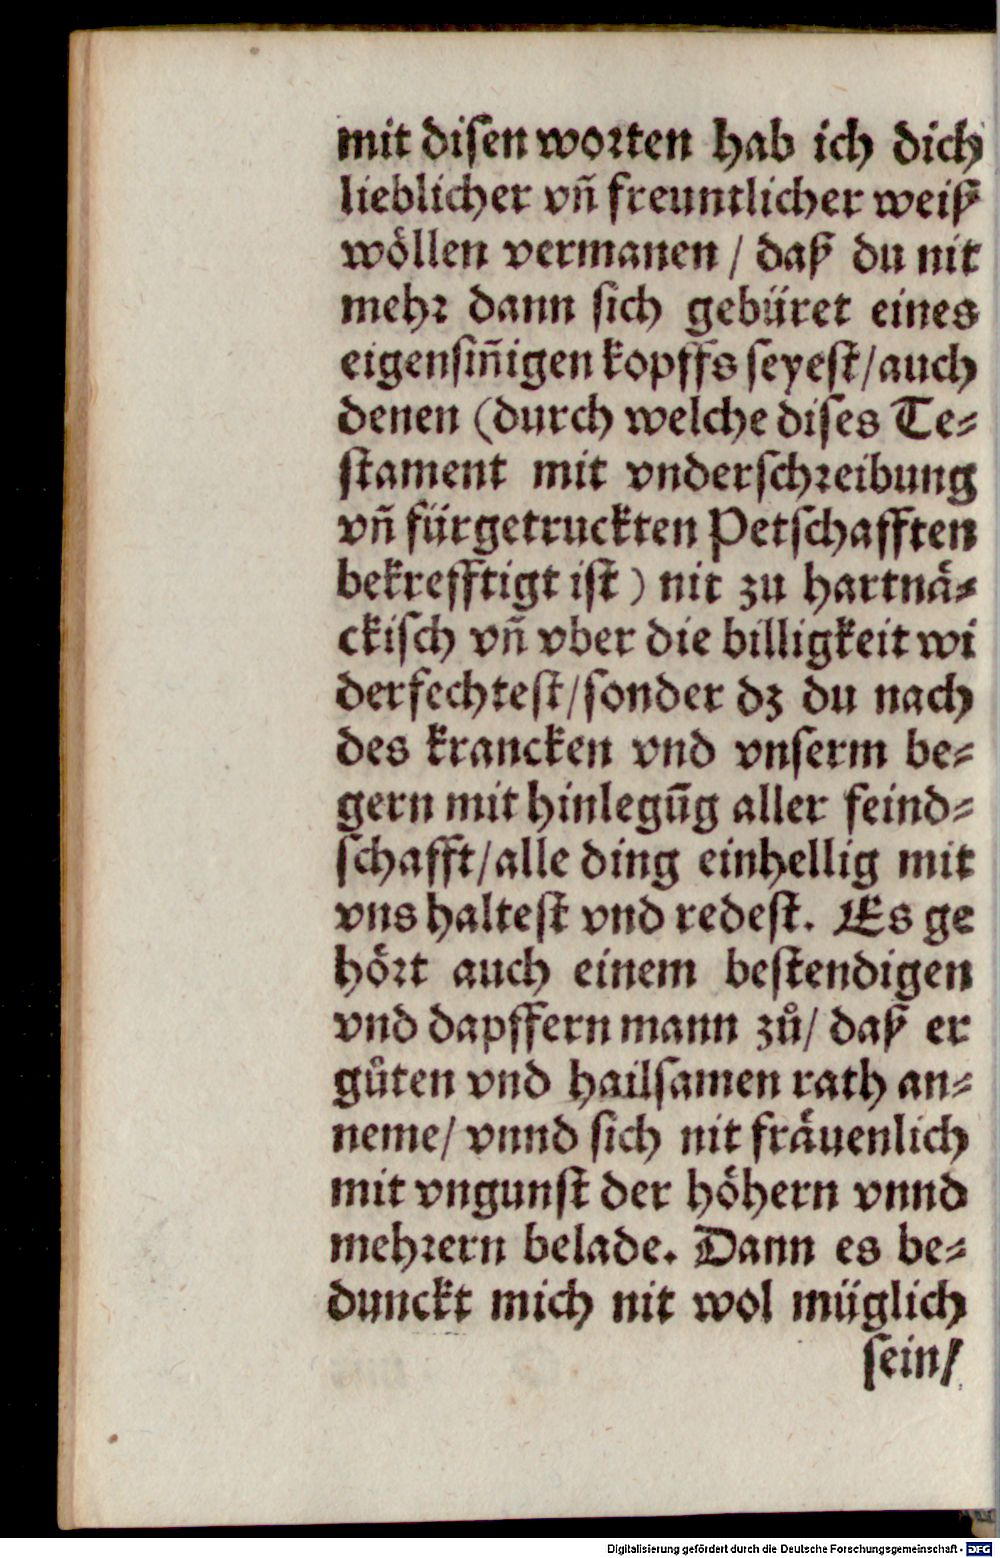 mit disen worten hab ich dich
lieblicher vñ freuntlicher weiß
wöllen vermanen / daß du nit
mehr dann sich gebüret eines
eigensiñigen kopffs seyest/auch
denen (durch welche dises Te-
stament mit vnderschreibung
vñ fürgetruckten Petschafften
bekrefftigt ist) nit zu hartnä-
ckisch vñ vber die billigkeit wi
derfechtest/sonder dz du nach
des krancken vnd vnserm be-
gern mit hinlegūg aller feind-
schafft/alle ding einhellig mit
vns haltest vnd redest. Es ge
hört auch einem bestendigen
vnd dapffern mann zů/ daß er
gůten vnd hailsamen rath an-
neme/ vnnd sich nit fräuenlich
mit vngunst der höhern vnnd
mehrern belade. Dann es be-
dunckt mich nit wol müglich
sein/
Digitalisierung gefördert durch die Deutsche Forschungsgemeinschaft - DFG